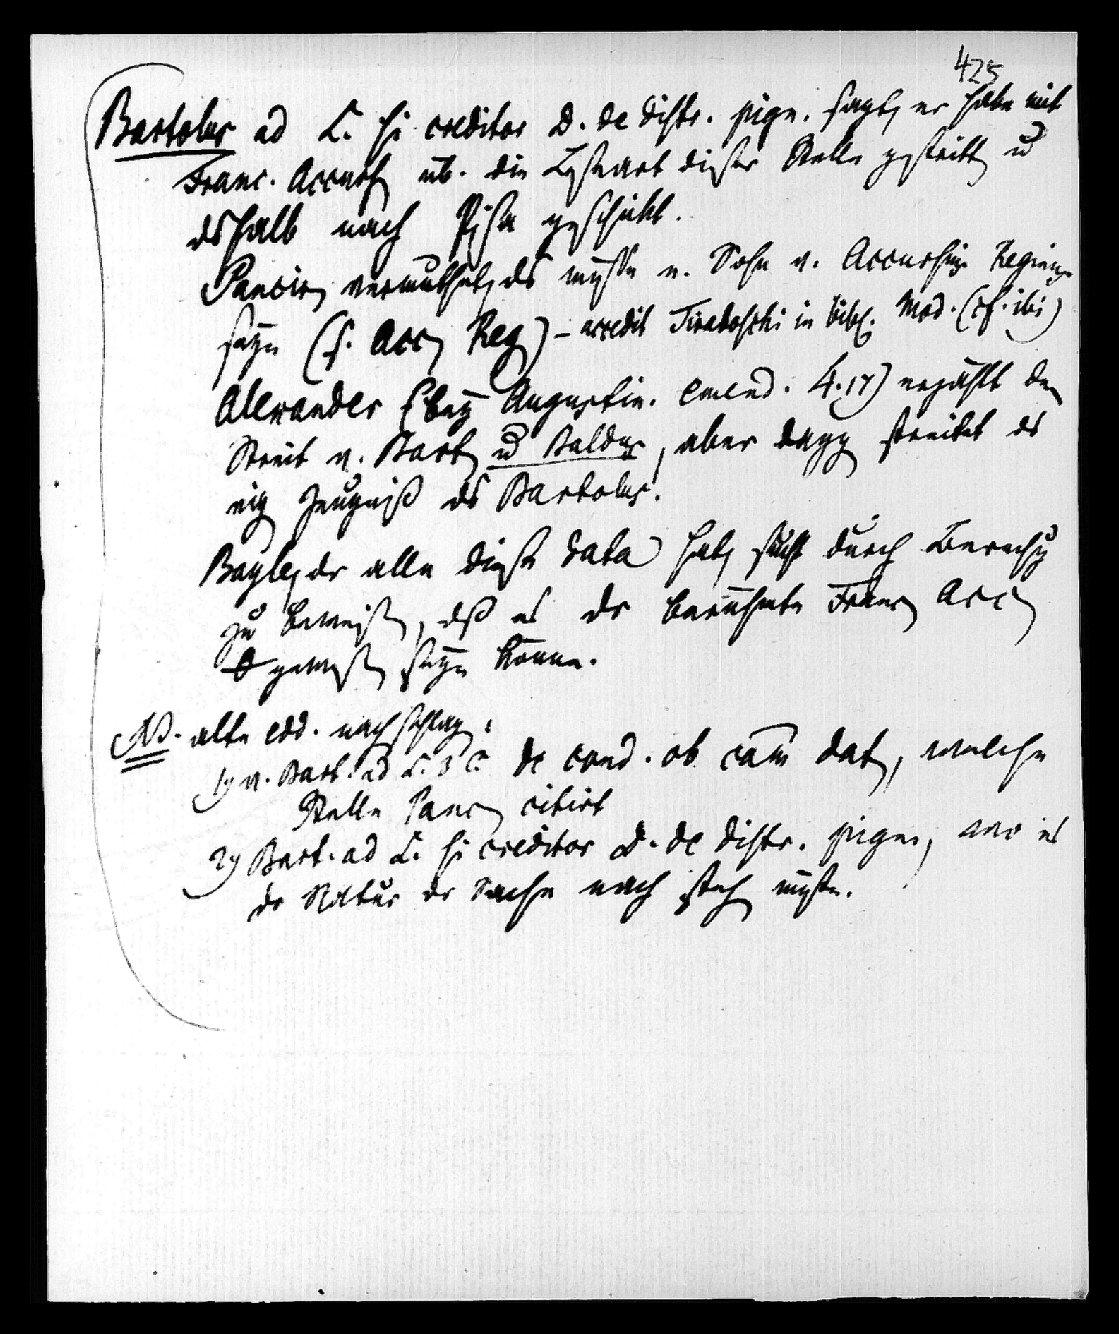 425
Bartolus ad L. si creditor D. de distr. pign. sagt, er habe mit
Franc. Accurs. üb. die Leseart dieser Stelle gestritt u
dshalb nach Pisa geschickt.
Pancir. vermuthet, ds müsse e. Sohn v. Accursius Regiens.
seyn (s. Acc. Reg.) – accedit Tiraboschi in bibl. Mod. (cf. ibi)
Alexander (bey Augustin. emend. 4.17) erzählt den
Streit v. Bart. u Baldus, aber dagg streitet ds
eig Zeugniß ds Bartolus.
Bayle, dr alle diese data hat, sucht durch Berechng
zu beweisen, dß es dr berühmte Franc. Acc.
gewesen seyn könne.
NB. alte edd. nachschlag:
1) v. Bart. ad L. 3 C. de cond. ob cam dat., welche
Stelle Panc. citirt
2) Bart. ad L. si creditor D. de distr. pign., wo es
dr Natur dr Sache nach steh müßte.